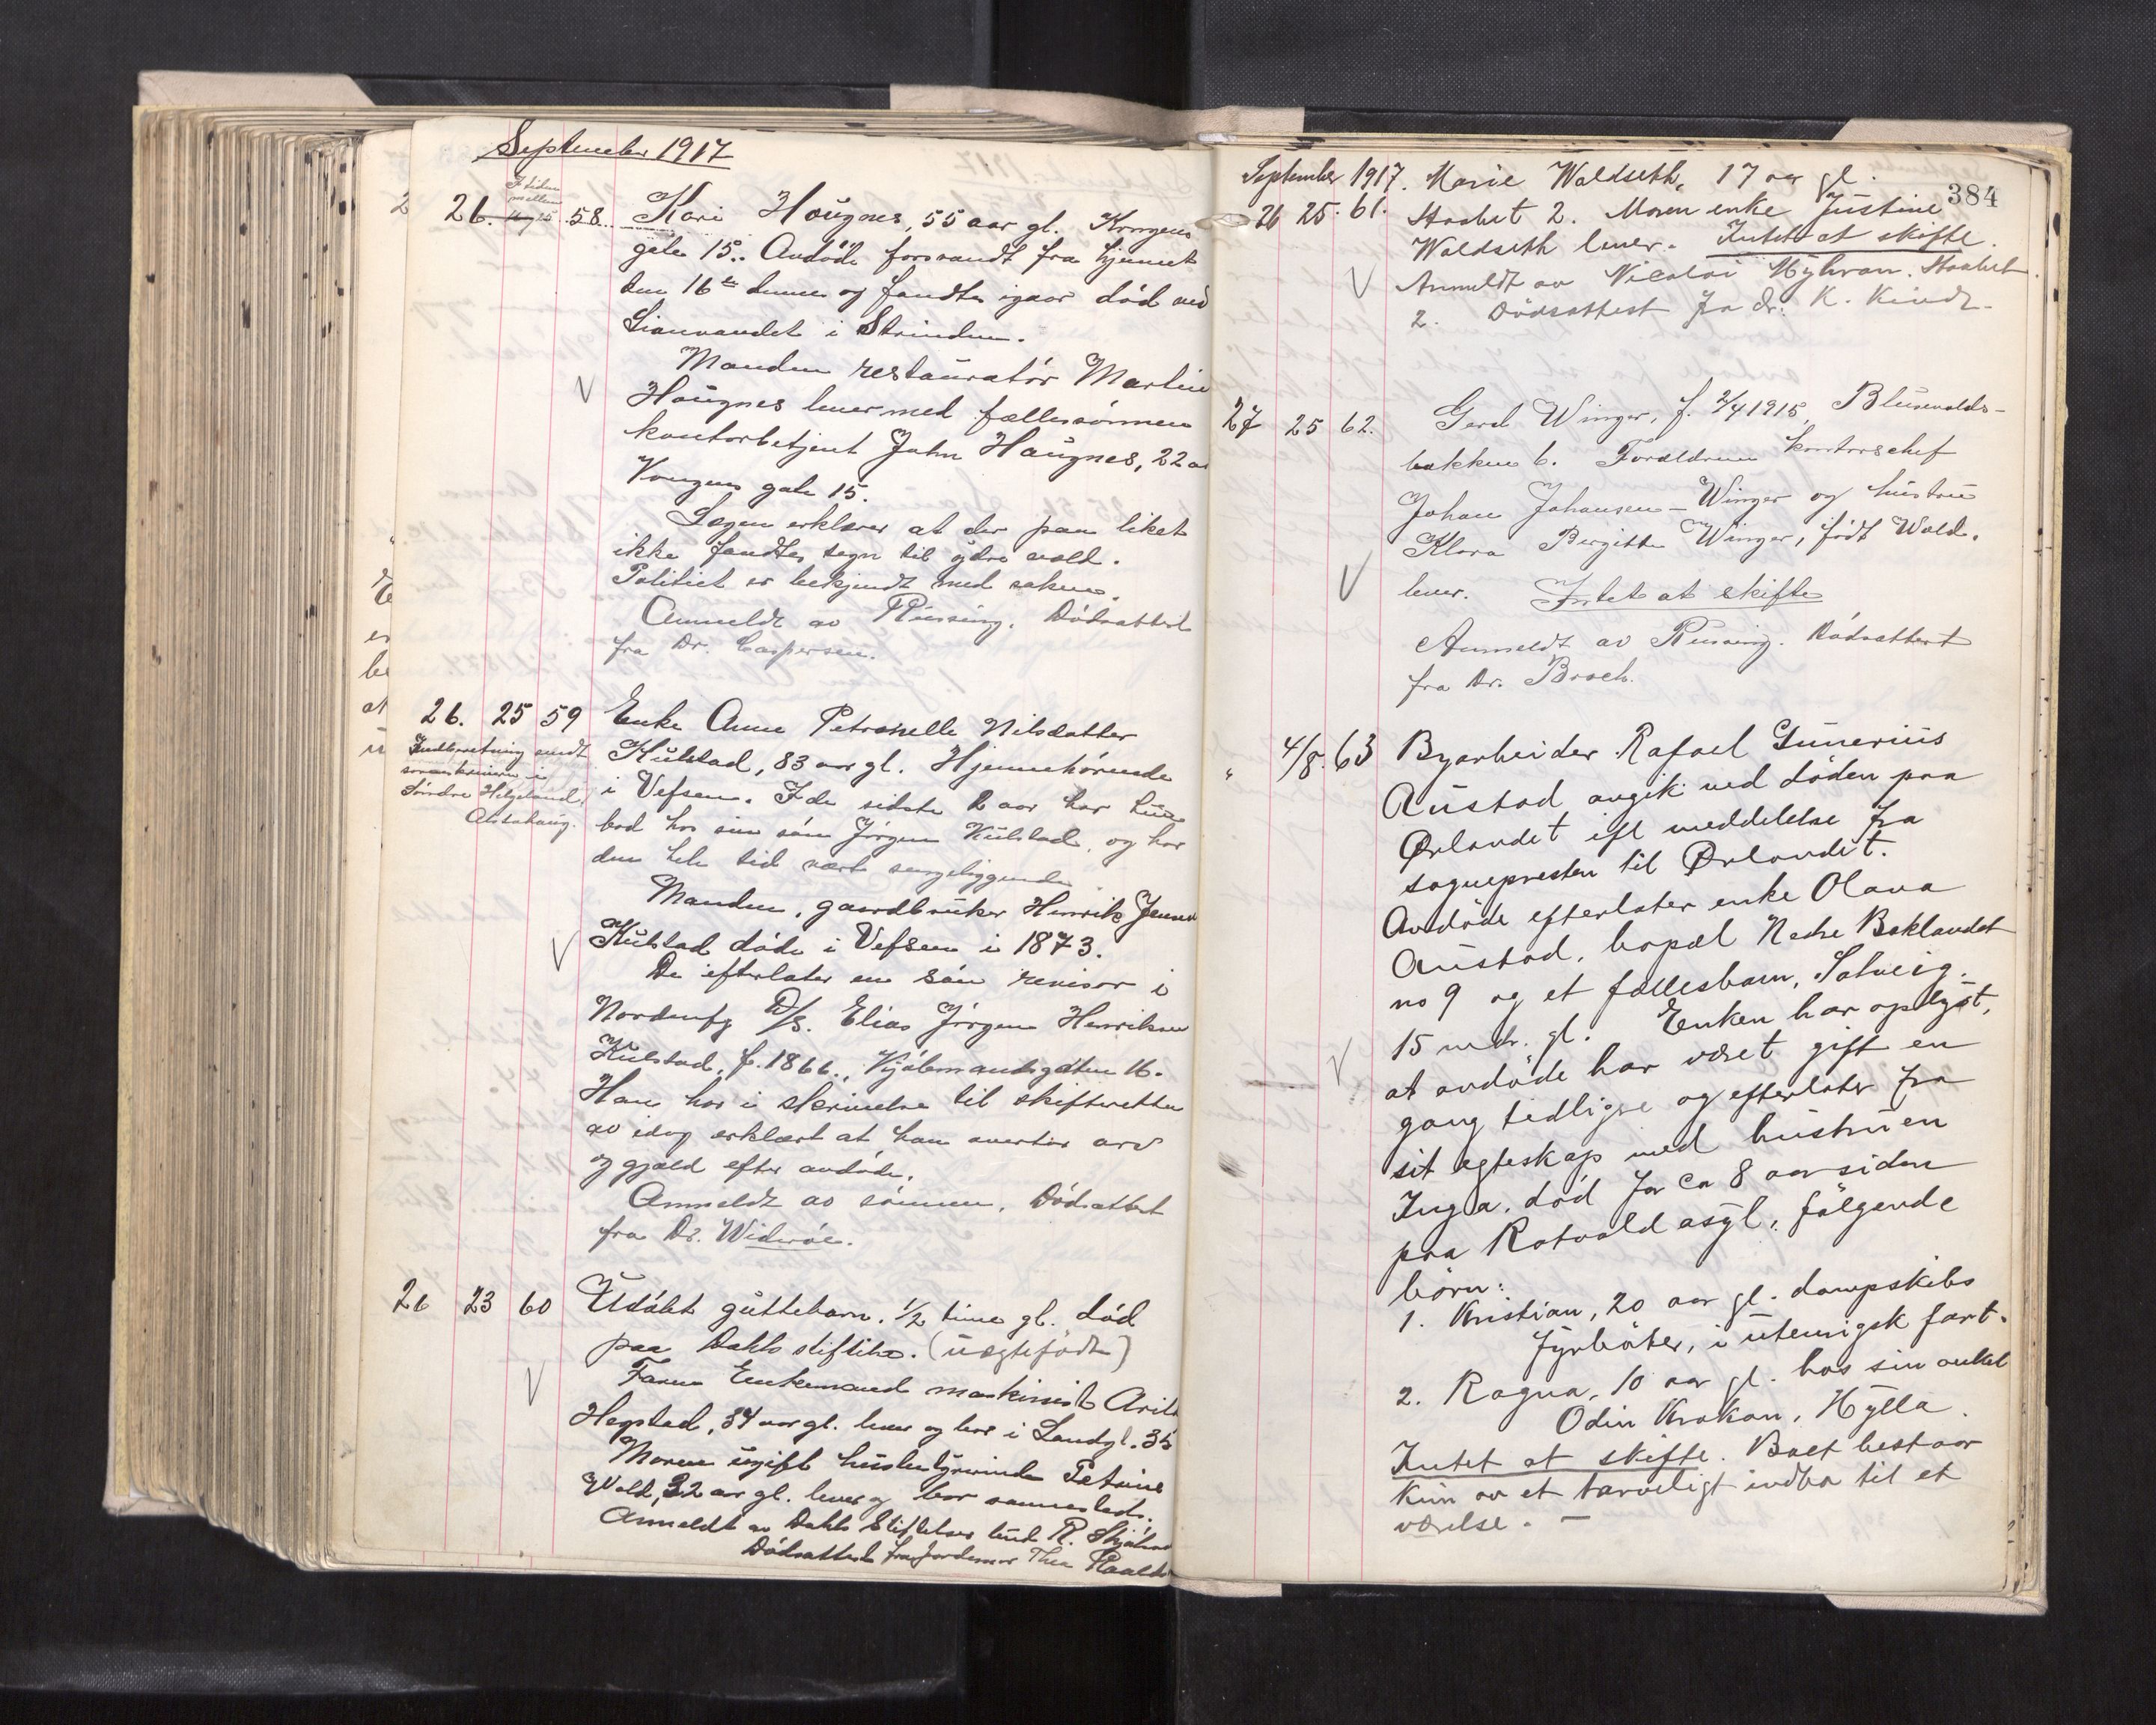 September 1917
I tiden
mellem
26. 16 og 25 58. Kari Hougnes, 55 aar gl. Kongens
gate 15. Avdöde forsvandt fra hjemmet
den 16de dennes og fandtes igaar död ved
Lianvandet i Strinden.
Manden restauratör Martin
Hougnes lever med fællessönnen
kontorbetjent John Hougnes, 22 aar
Kongens gate 15.
Lægen erklærer at der paa liket
ikke fandtes tegn til ydre vold.
Politiet er bekjendt med saken.
Anmeldt av Russing. Dödsattest
fra Dr. Caspersen.
26. 25 59 Enke Anne Petronelle Nilsdatter
Indberetning sendt
sorenskriveren i
Söndre Helgeland,
Alstahaug.
Kulstad, 83 aar gl. Hjemmehörende
i Vefsen. I de sidste 2 aar har hun
bod hos sin sön Jörgen Kulstad, og har
den hele tid vært sengeliggende
Manden, gaardbruker Henrik Jensen
Kulstad döde i Vefsen i 1873.
De efterlater en sön revisor i
Nordenfj D/S. Elias Jörgen Henriksen
Kulstad, f. 1866., Kjöbmandsgaten 16.
Han har i skrivelse til skifteretten
av idag erklært at han overtar arv
og gjæld efter avdöde.
Anmeldt av sönnen. Dödsattest
fra Dr. Wideröe.
26 23 60 Udöbt guttebarn. 1/2 time gl. död
paa Dahls stiftelse. (uægtefödt)
Faren Enkemand maskinist Arilt
Hegstad, 34 aar gl. lever og bor i Sandgt. 35
Moren ugift husbestyrerinde Petrine
Wold, 32 aar gl. lever og bor sammesteds.
Anmeldt av Dahls Stiftelse ved R.
Dödsattest fra jordemor Thea
384
September 1917. Marie Waldseth, 17 aar gl.
26 25. 61. Stasbet 2. Moren enke Justine
Waldseth lever. Intet at skifte.
Anmeldt av Nicolai Myhran. Stasbet
2. Dödsattest fra dr: K. Kindt.
27 25 62. Gerd Winger, f. 2/4 1915, Blusevolds-
bakken 6. Forældrene kontorschef
Johan Johansen-Winger og hustru
Klara Birgitte Winger, födt Wold.
lever. Intet at skifte
Anmeldt av Russing. Dödsattest
fra Dr. Broch.
" 4/8. 63 Byarbeider Rafael Gunerius
Austad avgik ved döden paa
Ørlandet ifl meddelelse fra
sognepresten til Ørlandet.
Avdöde efterlater enke Olava
Austad, bopæl Nedre Baklandet
no 9 og et fællesbarn, Solveig.
15 mdr. gl. Enken har oplyst,
at avdöde har været gift en
gang tidligere og efterlater fra
sit egteskap med hustruen
Inga, död for ca 8 aar siden
paa Rotvold asyl, fölgende
börn:
1. Kristian, 20 aar gl. dampskibs
fyrböter, i utenrigsk fart.
2. Ragna, 10 aar gl. hos sin onkel
Odin Krokan, Hylla.
Intet at skifte. Boet bestaar
kun av et tarveligt indbo til et
værelse. —